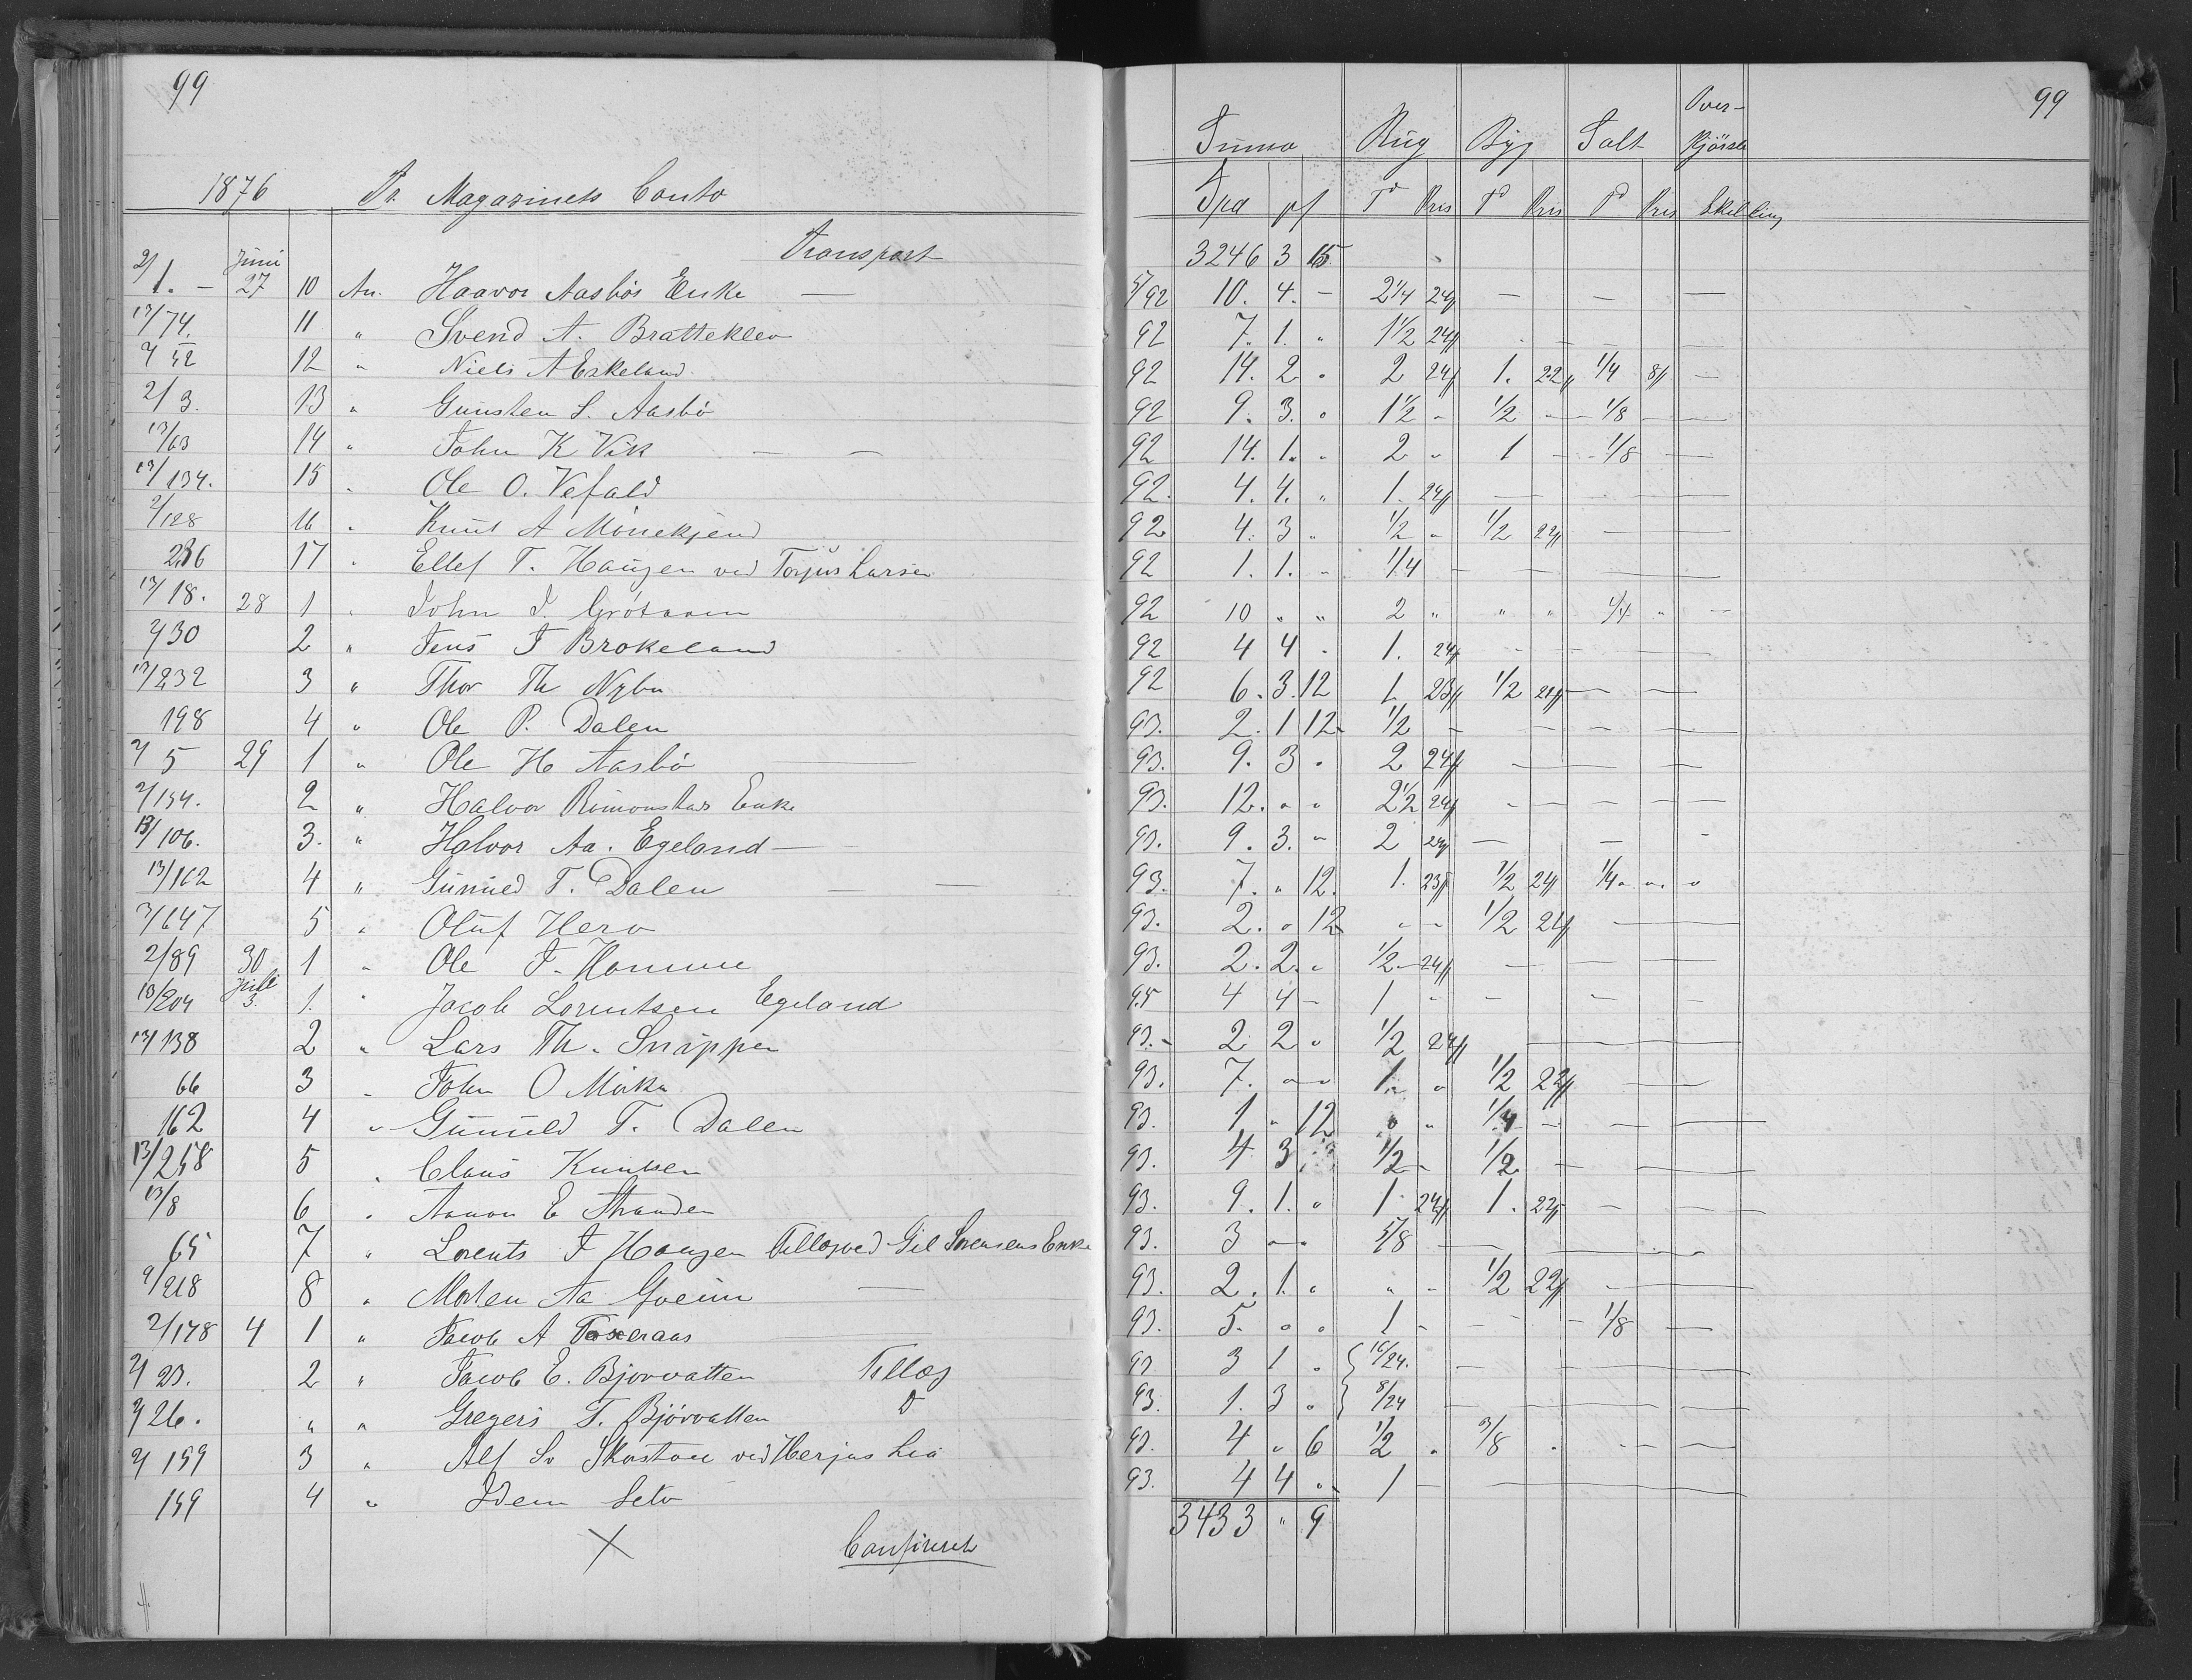 99
1876 Dr. Magazinets Conto
Transport
2/1. – Juni 27 10 An. Haavor Aasbös Enke —
13/74. 11 " Svend A. Bratteklev
2/52 12 " Niels A Eskeland
2/3. 13 " Gunsten S. Aasbö
13/63 14 " John K Vik — —
13/134. 15 " Ole O. Vefald
2/128 16 " Knut A Mönekjend
236 17 " Ellef T. Haugen ved Torjus Larsen
13/18. 28 1 " John J. Grötaaen
2/30 2 " Jens J Brokeland
13/232 3 " Thor Th Nybu
198 4 " Ole P. Dalen
2/5 29 1 " Ole H Aasbö —
2/154. 2 " Halvor Rimonstas Enke
13/106. 3. " Halvor Aa. Egeland —
13/162 4 " Gunuld T. Dalen — —
2/647 5 " Oluf Hero
2/89 30 1 " Ole J. Homme
13/204 Juli 3. 1. " Jacob Lorentsen Egeland
13/138 2 " Lars Th. Snippen
66 3 " John O Mörke
162 4 " Gunuld T. Dalen
13/258 5 " Claus Knutsen
13/8 6 " Aanon E Stranden
65 7 " Lorents J Haugen Tillæg ved Gil Sorensens Enke
2/218 8 " Morten Aa Gveim —
2/178 4 1 " Jacob A Toxeraas —
2/23. 2 " Jacob E. Bjorvatten Tillæg
2/26. " " Gregers T. Bjórvatten D
2/159 3 " Alf Sv Skaatan ved Herjus Lia
159 4 " Idem Selv
Confereret
99
Summa Rug Byg Salt Over-kjörsel
Spd pf Td Pris Td Pris Td Pris Skilling
3246 3 15
5/92 10. 4. – 2 1/4 24ff — — —
92 7. 1. " 1 1/2 24ff
92 14. 2 " 2 24ff 1. 22ff 1/4 8ff —
92 9. 3. " 1 1/2 – 1/2 – 1/8 – —
92 14. 1. " 2 " 1 – 1/8 —
92. 4. 4. " 1. 24ff — — —
92 4. 3 " 1/2 " 1/2 22ff — —
92 1. 1. " 1/4 — — —
92 10 " " 2 " " " 1/4 " —
92 4 4 " 1. 24ff — — —
92 6. 3. 12 1 23ff 1/2 21ff — —
93. 2. 1 12 1/2 – — — —
93. 9. 3 " 2 24ff — — —
93. 12. " " 2 1/2 24ff — — —
93. 9. 3. " 2 24ff — — —
93. 7. " 12. 1. 23ff 1/2 24ff 1/4 " " "
93. 2. " 12 " – 1/2 24ff —
93. 2. 2. " 1/2 – 24ff — — —
95 4 4 – 1 – — — —
93. 2 2 " 1/2 24ff —
93. 7. " " 1. " 1/2 22ff —
93. 1 " 12 " " 1/4 – — —
93. 4 3 1/2 – 1/2 – —
93. 9. 1. " 1 24ff 1. 22ff — —
93. 3 " " 5/8 — — —
93. 2. 1. " " – 1/2 22ff —
93. 5. " " 1 – – – 1/8 —
93 3 1 " { 16/24. — — —
93. 1. 3 " } 8/24 — — —
93. 4 " 6 1/2 " 3/8 " — —
93. 4 4 " 1 – —
3433 " 9